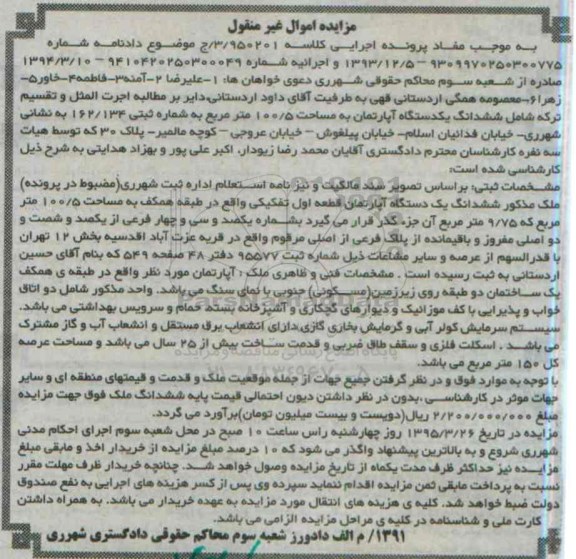 مزایده اموال غیر منقول
به موجب مفاد پرونده اجرایی کلاسه ۳/۹۵۰۲۰۱/ج موضوع دادنامه شماره
۹۳۰۹۹۷۰۲۵۰۳۰۰۷۷۵ – ۱۳۹۳/۱۲/۵ و اجرائیه شماره ۹۴۱۰۴۲۰۲۵۰۳۰۰۰۴۹ – ۱۳۹۴/۳/۱۰
صادره از شعبه سوم محاکم حقوقی شهرری دعوی خواهان ها: ۱-علیرضا ۲-آمنه۳-فاطمه۴-خاور۵-
زهرا۶-معصومه همگی اردستانی قهی به طرفیت آقای داود اردستانی،دایر بر مطالبه اجرت المثل و تقسیم
ترکه شامل ششدانگ یکدستگاه آپارتمان به مساحت ۱۰۰/۵ متر مربع به شماره ثبتی ۱۶۲/۱۳۴ به نشانی
شهرری- خیابان فدائیان اسلام- خیابان پیلغوش – خیابان عروجی – کوچه مالمیر- پلاک ۳۰ که توسط هیات
سه نفره کارشناسان محترم دادگستری آقایان محمد رضا زیودار، اکبر علی پور و بهزاد هدایتی به شرح ذیل
کارشناسی شده است،
مشخصات ثبتی: براساس تصویر سند مالکیت و نیز نامه استعلام اداره ثبت شهرری(مضبوط در پرونده)
ملک مذکور ششدانگ یک دستگاه آپارتمان قطعه اول تفکیکی واقع در طبقه همکف به مساحت ۱۰۰/۵ متر
مربع که ۹/۷۵ متر مربع آن جزء گذر قرار می گیرد بشماره یکصد و سی و چهار فرعی از یکصد و شصت و
دو اصلی مفروز و باقیمانده از پلاک فرعی از اصلی مرقوم واقع در قریه عزت آباد اقدسیه بخش ۱۲ تهران
با قدرالسهم از عرصه و سایر مشاعات ذیل شماره ثبت ۹۵۵۷۷ دفتر ۴۸ صفحه ۵۴۹ که بنام آقای حسین
اردستانی به ثبت رسیده است . مشخصات فنی و ظاهری ملک : آپارتمان مورد نظر واقع در طبقه ی همکف
یک ساختمان دو طبقه روی زیرزمین(مسکونی) جنوبی با نمای سنگ می باشد. واحد مذکور شامل دو اتاق
خواب و پذیرایی با کف موزائیک و دیوارهای گچکاری و آشپزخانه بسته، حمام و سرویس بهداشتی می باشد.
سیستم سرمایش کولر آبی و گرمایش بخاری گازی،دارای انشعاب برق مستقل و انشعاب آب و گاز مشترک
می باشد . اسکلت فلزی و سقف طاق ضربی و قدمت ساخت بیش از ۲۵ سال می باشد و مساحت عرصه
کل ۱۵۰ متر مربع می باشد.
با توجه به موارد فوق و در نظر گرفتن جمیع جهات از جمله موقعیت ملک و قدمت و قیمتهای منطقه ای و سایر
جهات موثر در کارشناسی ،بدون در نظر داشتن دیون احتمالی قیمت پایه ششدانگ ملک فوق جهت مزایده
مبلغ ۲/۲۰۰/۰۰۰/۰۰۰ ریال(دویست و بیست میلیون تومان)برآورد می گردد.
مزایده در تاریخ ۱۳۹۵/۳/۲۶ روز چهارشنبه راس ساعت ۱۰ صبح در محل شعبه سوم اجرای احکام مدنی
شهرری شروع و به بالاترین پیشنهاد واگذر می شود که ۱۰ درصد مبلغ مزایده از خریدار اخذ و مابقی مبلغ
مزایده نیز حداکثر ظرف مدت یکماه از تاریخ مزایده وصول خواهد شد. چنانچه خریدار ظرف مهلت مقرر
نسبت به پرداخت مابقی ثمن مزایده اقدام ننماید سپرده وی پس از کسر هزینه های اجرایی به نفع صندوق
دولت ضبط خواهد شد. کلیه ی هزینه های انتقال مورد مزایده به عهده خریدار می باشد. به همراه داشتن
کارت ملی و شناسنامه در کلیه ی مراحل مزایده الزامی می باشد.
۱۳۹۱/ م الف دادورز شعبه سوم محاکم حقوقی دادگستری شهرری